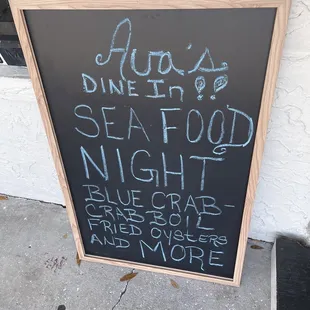 Ava's
DINE IN !!
SEA FOOD
NIGHT
BLUE CRAB-
CRAB BOIL
FRIED OYSTERS
AND MORE